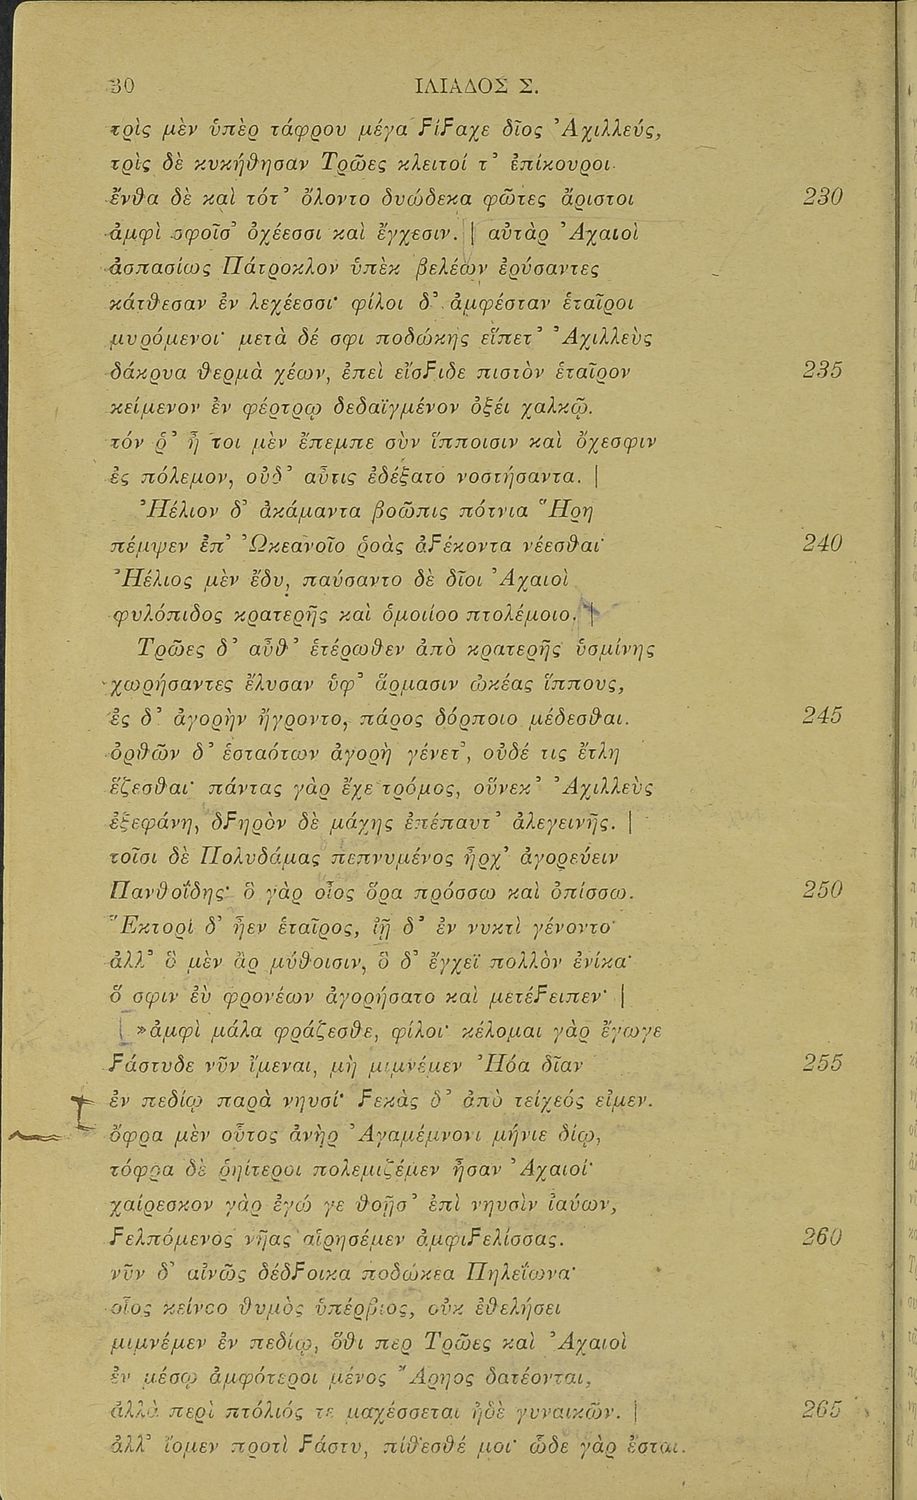 30 ΙΛΙΑΔΟΣ Σ.
τρὶς μὲν ὑπὲρ τάφρου μέγα ϜίϜαχε δῖος Ἀχιλλεύς,
τρὶς δὲ κυκήθησαν Τρῶες κλειτοί τ᾽ ἐπίκουροι·
ἔνθα δὲ καὶ τότ᾽ ὄλοντο δυώδεκα φῶτες ἄριστοι 230
ἀμφὶ σφοῖσ᾽ ὀχέεσσι καὶ ἔγχεσιν. | αὐτὰρ Ἀχαιοὶ
ἀσπασίως Πάτροκλον ὑπὲκ βελέων ἐρύσαντες
κάτθεσαν ἐν λεχέεσσι· φίλοι δ᾽ ἀμφέσταν ἑταῖροι
μυρόμενοι· μετὰ δέ σφι ποδώκης εἵπετ᾽ Ἀχιλλεὺς
δάκρυα θερμὰ χέων, ἐπεὶ εἴσϜιδε πιστὸν ἑταῖρον 235
κείμενον ἐν φέρτρῳ δεδαϊγμένον ὀξέι χαλκῷ.
τόν ῥ᾽ ἦ τοι μὲν ἔπεμπε σὺν ἵπποισιν καὶ ὄχεσφιν
ἐς πόλεμον, οὐδ᾽ αὖτις ἐδέξατο νοστήσαντα. |
Ἠέλιον δ᾽ ἀκάμαντα βοῶπις πότνια Ἥρη
πέμψεν ἐπ᾽ Ὠκεανοῖο ῥοὰς ἀϜέκοντα νέεσθαι· 240
Ἠέλιος μὲν ἔδυ, παύσαντο δὲ δῖοι Ἀχαιοὶ
φυλόπιδος κρατερῆς καὶ ὁμοιίοο πτολέμοιο. |
Τρῶες δ᾽ αὖθ᾽ ἑτέρωθεν ἀπὸ κρατερῆς ὑσμίνης
χωρήσαντες ἔλυσαν ὑφ᾽ ἅρμασιν ὠκέας ἵππους,
ἐς δ᾽ ἀγορὴν ἤγροντο, πάρος δόρποιο μέδεσθαι. 245
ὀρθῶν δ᾽ ἑσταότων ἀγορὴ γένετ᾽, οὐδέ τις ἔτλη
ἕζεσθαι· πάντας γὰρ ἔχε τρόμος, οὕνεκ᾽ Ἀχιλλεὺς
ἐξεφάνη, δϜηρὸν δὲ μάχης ἐπέπαυτ᾽ ἀλεγεινῆς. |
τοῖσι δὲ Πολυδάμας πεπνυμένος ἦρχ᾽ ἀγορεύειν
Πανθοΐδης· ὃ γὰρ οἶος ὅρα πρόσσω καὶ ὀπίσσω. 250
Ἕκτορι δ᾽ ἦεν ἑταῖρος, ἰῇ δ᾽ ἐν νυκτὶ γένοντο·
ἀλλ᾽ ὃ μὲν ἂρ μύθοισιν, ὃ δ᾽ ἔγχεϊ πολλὸν ἐνίκα·
ὅ σφιν ἐὺ φρονέων ἀγορήσατο καὶ μετέϜειπεν· |
| »ἀμφὶ μάλα φράζεσθε, φίλοι· κέλομαι γὰρ ἔγωγε
Ϝάστυδε νῦν ἴμεναι, μὴ μιμνέμεν Ἠόα δῖαν 255
ἐν πεδίῳ παρὰ νηυσί· Ϝεκὰς δ᾽ ἀπὸ τείχεός εἰμεν.
ὄφρα μὲν οὗτος ἀνὴρ Ἀγαμέμνονι μήνιε δίῳ,
τόφρα δὲ ῥηίτεροι πολεμιζέμεν ἦσαν Ἀχαιοί·
χαίρεσκον γὰρ ἐγώ γε θοῇσ᾽ ἐπὶ νηυσὶν ἰαύων,
Ϝελπόμενος νῆας αἱρησέμεν ἀμφιϜελίσσας. 260
νῦν δ᾽ αἰνῶς δέδϜοικα ποδώκεα Πηλεΐωνα·
οἷος κείνοο θυμὸς ὑπέρβιος, οὐκ ἐθελήσει
μιμνέμεν ἐν πεδίῳ, ὅθι περ Τρῶες καὶ Ἀχαιοὶ
ἐν μέσῳ ἀμφότεροι μένος Ἄρηος δατέονται,
ἀλλὰ περὶ πτόλιός τε μαχέσσεται ἠδὲ γυναικῶν. | 265
ἀλλ᾽ ἴομεν προτὶ Ϝάστυ, πίθεσθέ μοι· ὧδε γὰρ ἔσται.